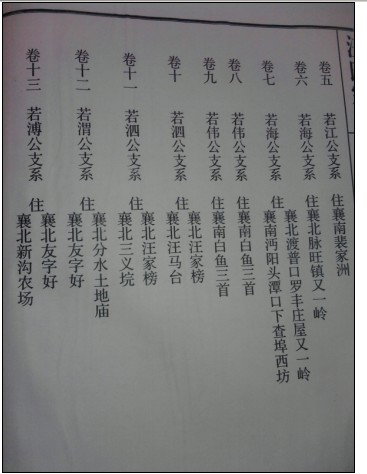 卷五 若江公支系 住襄南裴家洲
卷六 若海公支系 住襄北脉旺镇又一岭
襄北渡普口罗丰庄屋又一岭
卷七 若海公支系 住襄南沔阳头潭口下查埠西坊
卷八 若伟公支系 住襄南白鱼三首
卷九 若伟公支系 住襄南白鱼三首
卷十 若泗公支系 住襄北汪家榜
襄北汪马台
卷十一 若泗公支系 住襄北汪家榜
襄北三义垸
卷十二 若渭公支系 住襄北分水土地庙
襄北友字好
卷十三 若溥公支系 住襄北友字好
襄北新沟农场